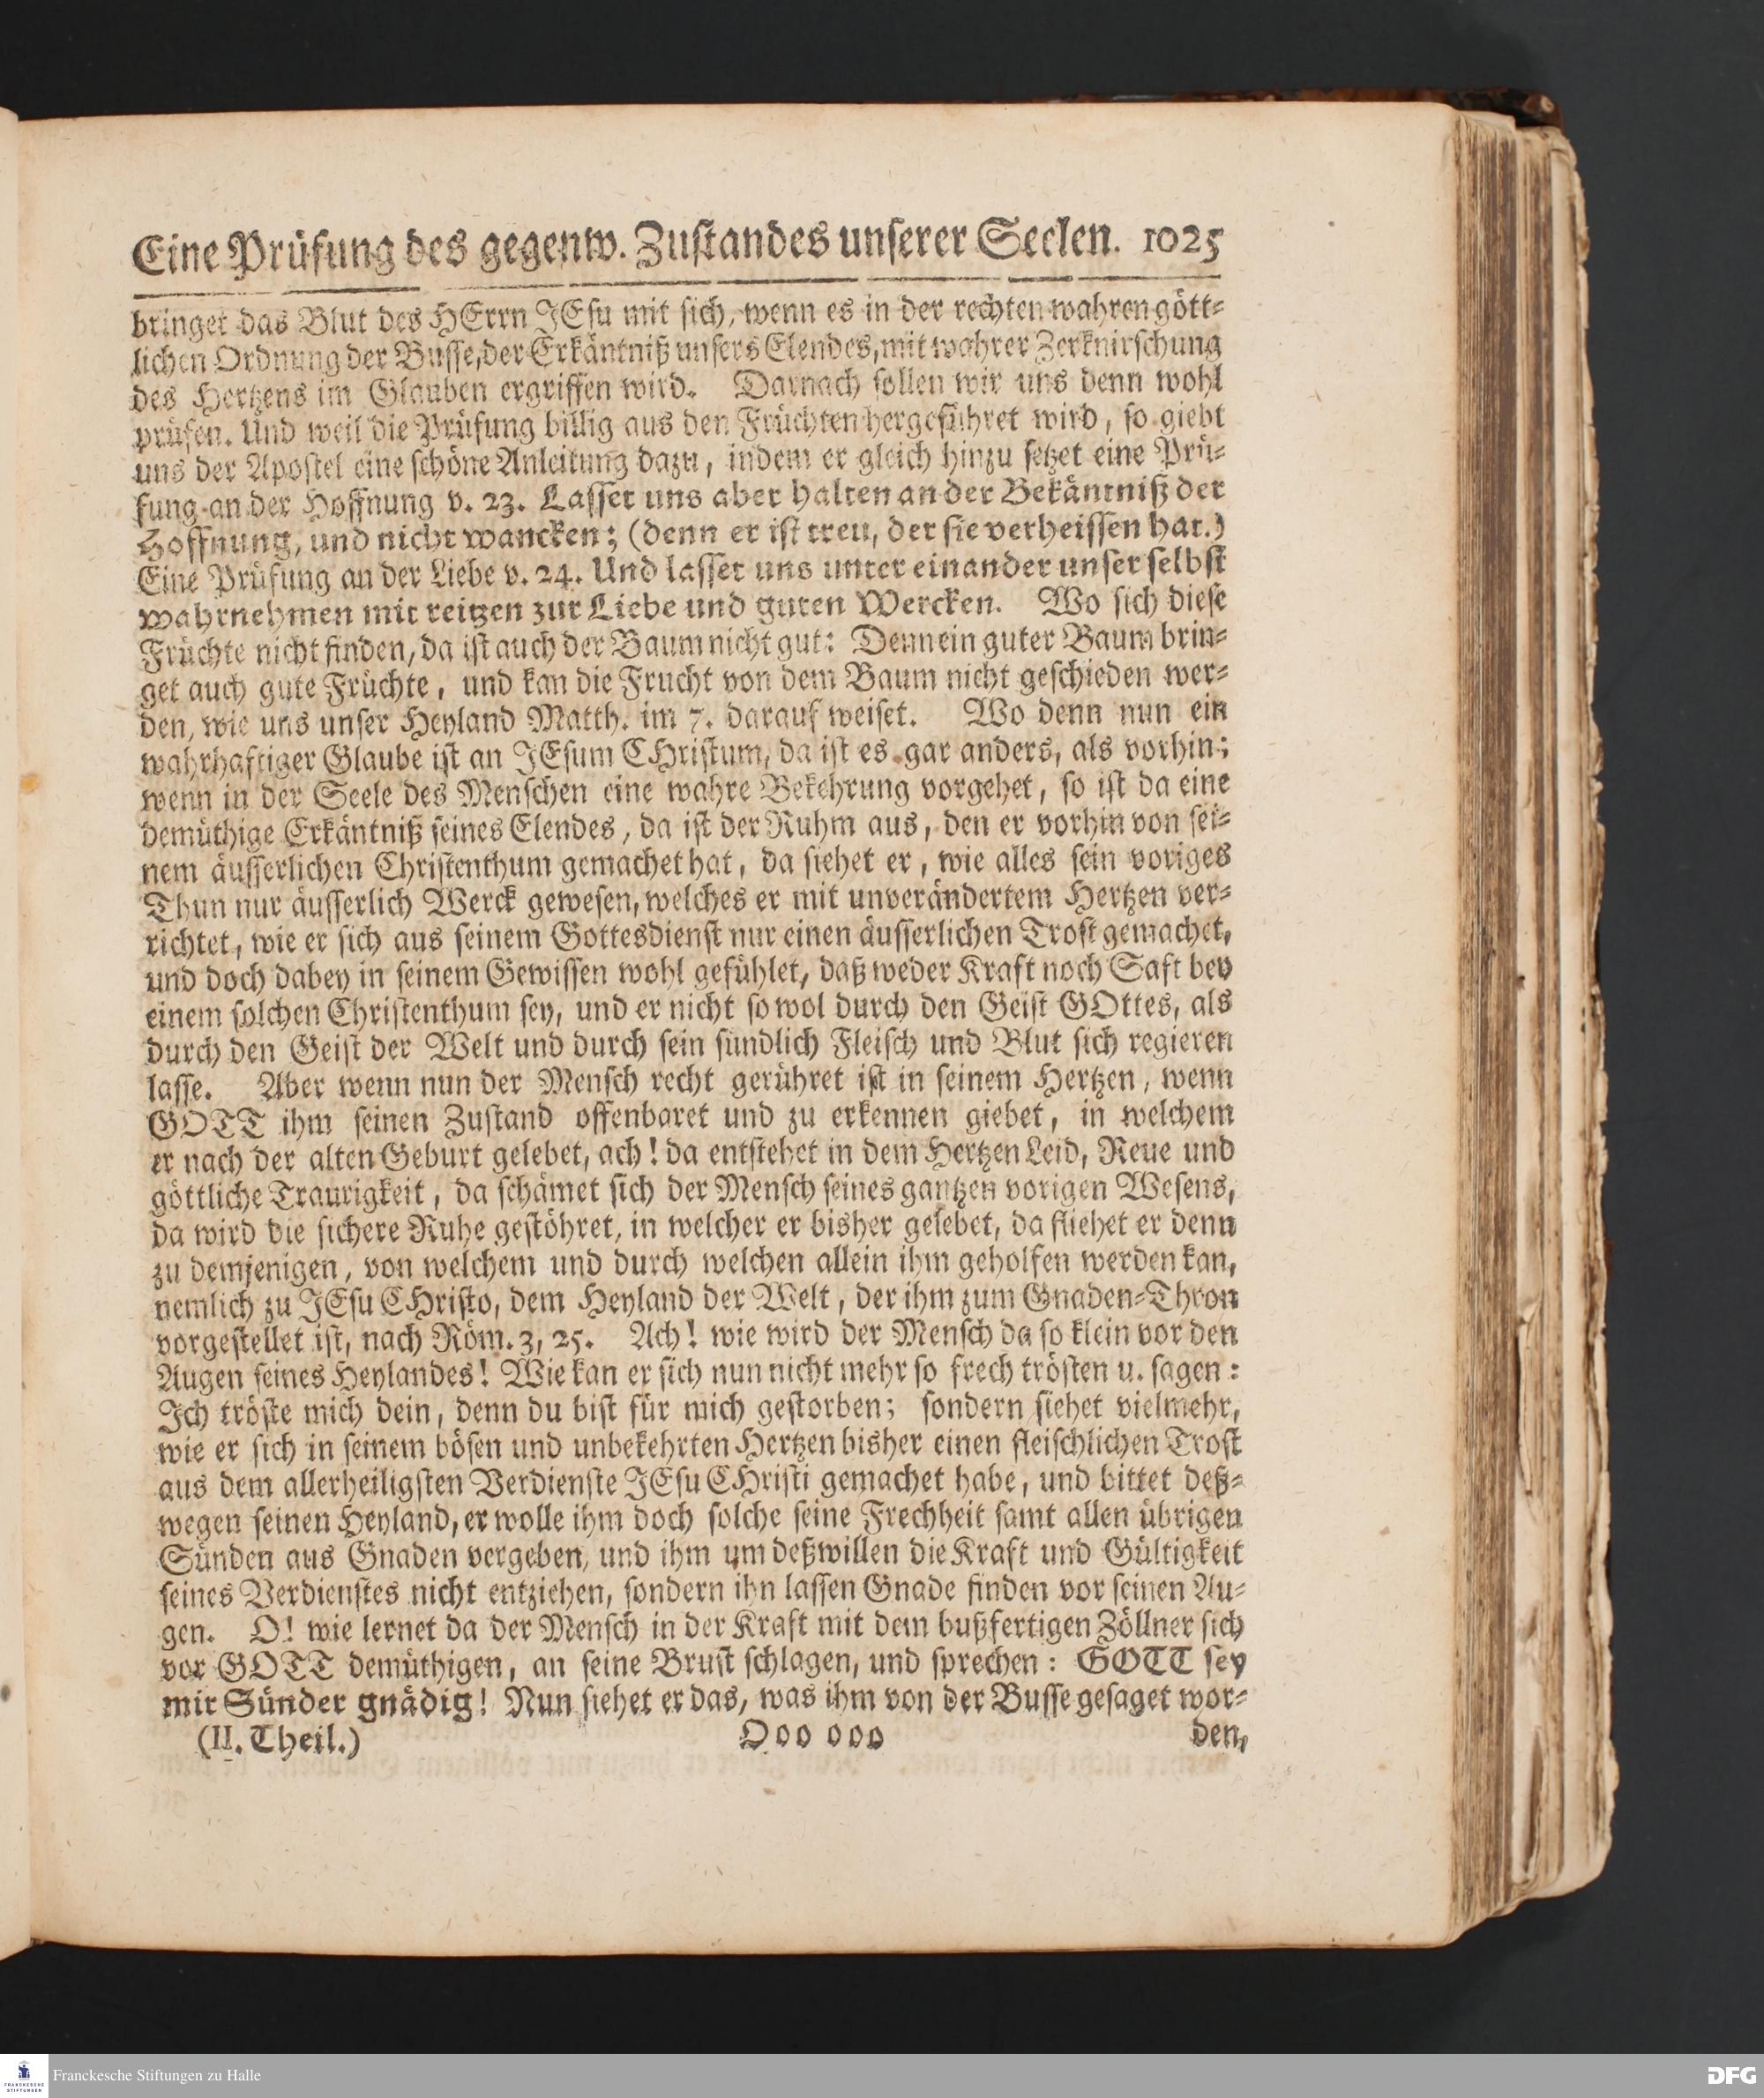 Eine Prüfung des gegenw. Zustandes unserer Seelen. 1025
bringet das Blut des HErrn JEsu mit sich, wenn es in der rechten wahren gött-
lichen Ordnung der Busse, der Erkäntniß unsers Elendes, mit wahrer Zerknirschung
des Hertzens im Glauben ergriffen wird. Darnach sollen wir uns denn wohl
prüfen. Und weil die Prüfung billig aus den Früchten hergeführet wird, so giebt
uns der Apostel eine schöne Anleitung dazu, indem er gleich hinzu setzet eine Prü-
fung an der Hoffnung v. 23. Lasset uns aber halten an der Bekäntniß der
Hoffnung, und nicht wancken; (denn er ist treu, der sie verheissen hat.)
Eine Prüfung an der Liebe v. 24. Und lasset uns unter einander unser selbst
wahrnehmen mit reitzen zur Liebe und guten Wercken. Wo sich diese
Früchte nicht finden, da ist auch der Baum nicht gut: Denn ein guter Baum brin-
get auch gute Früchte, und kan die Frucht von dem Baum nicht geschieden wer-
den, wie uns unser Heyland Matth. im 7. darauf weiset. Wo denn nun ein
wahrhaftiger Glaube ist an JEsum CHristum, da ist es gar anders, als vorhin;
wenn in der Seele des Menschen eine wahre Bekehrung vorgehet, so ist da eine
demüthige Erkäntniß seines Elendes, da ist der Ruhm aus, den er vorhin von sei-
nem äusserlichen Christenthum gemachet hat, da siehet er, wie alles sein voriges
Thun nur äusserlich Werck gewesen, welches er mit unverändertem Hertzen ver-
richtet, wie er sich aus seinem Gottesdienst nur einen äusserlichen Trost gemachet,
und doch dabey in seinem Gewissen wohl gefühlet, daß weder Kraft noch Saft bey
einem solchen Christenthum sey, und er nicht so wol durch den Geist GOttes, als
durch den Geist der Welt und durch sein sündlich Fleisch und Blut sich regieren
lasse. Aber wenn nun der Mensch recht gerühret ist in seinem Hertzen, wenn
GOTT ihm seinen Zustand offenbaret und zu erkennen giebet, in welchem
er nach der alten Geburt gelebet, ach! da entstehet in dem Hertzen Leid, Reue und
göttliche Traurigkeit, da schämet sich der Mensch seines gantzen vorigen Wesens,
da wird die sichere Ruhe gestöhret, in welcher er bisher gelebet, da fliehet er denn
zu demjenigen, von welchem und durch welchen allein ihm geholfen werden kan,
nemlich zu JEsu CHristo, dem Heyland der Welt, der ihm zum Gnaden-Thron
vorgestellet ist, nach Röm. 3, 25. Ach! wie wird der Mensch da so klein vor den
Augen seines Heylandes! Wie kan er sich nun nicht mehr so frech trösten u. sagen:
Ich tröste mich dein, denn du bist für mich gestorben; sondern siehet vielmehr,
wie er sich in seinem bösen und unbekehrten Hertzen bisher einen fleischlichen Trost
aus dem allerheiligsten Verdienste JEsu CHristi gemachet habe, und bittet deß-
wegen seinen Heyland, er wolle ihm doch solche seine Frechheit samt allen übrigen
Sünden aus Gnaden vergeben, und ihm um deßwillen die Kraft und Gültigkeit
seines Verdienstes nicht entziehen, sondern ihn lassen Gnade finden vor seinen Au-
gen. O! wie lernet da der Mensch in der Kraft mit dem bußfertigen Zöllner sich
vor GOTT demüthigen, an seine Brust schlagen, und sprechen: GOTT sey
mir Sünder gnädig! Nun siehet er das, was ihm von der Busse gesaget wor-
(II. Theil.) Ooo ooo den,
FRANCKESCHE STIFTUNGEN
Franckesche Stiftungen zu Halle
DFG